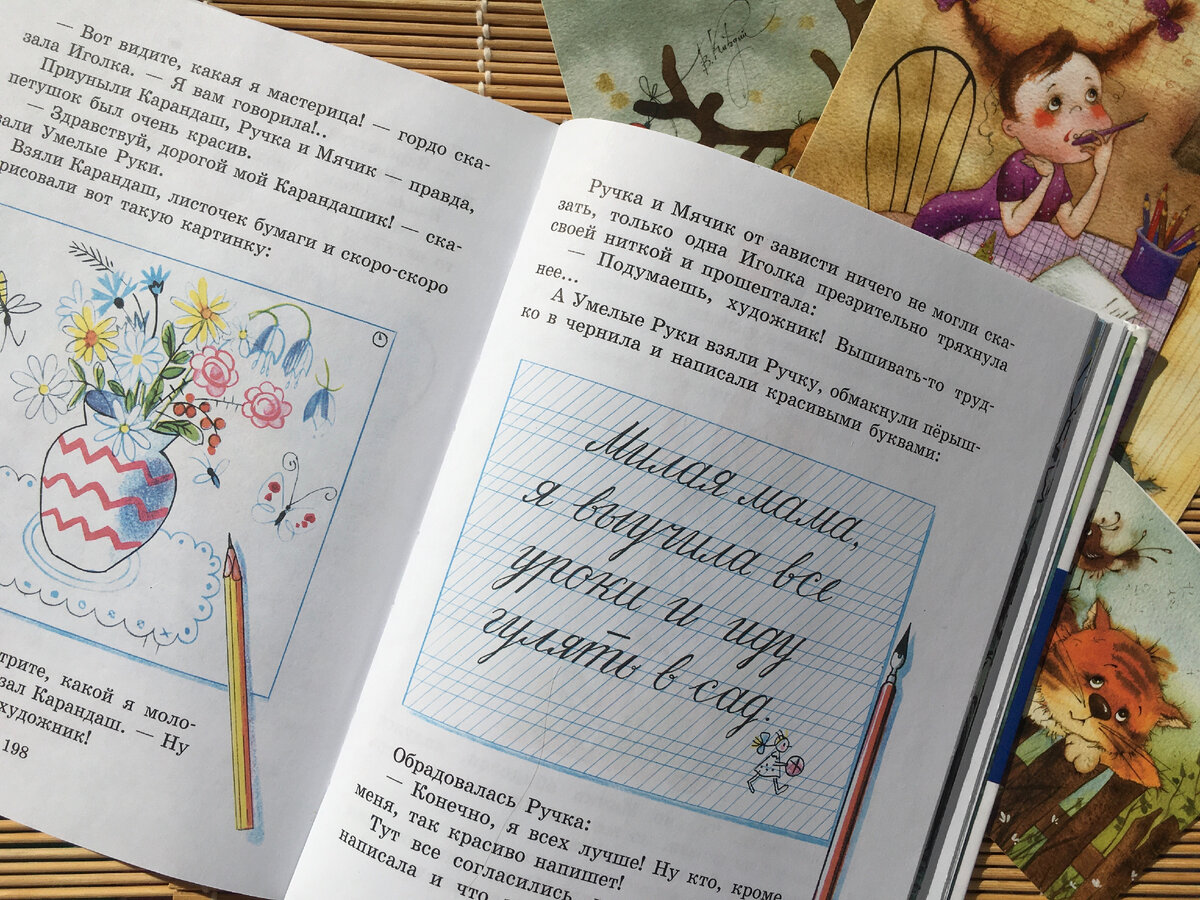 — Вот видите, какая я мастерица! — гордо ска-
зала Иголка. — Я вам говорила!..
Приуныли Карандаш, Ручка и Мячик — правда,
петушок был очень красив.
— Здравствуй, дорогой мой Карандашик! — ска-
Умелые Руки.
Взяли Карандаш, листочек бумаги и скоро-скоро
рисовали вот такую картинку:
какой я моло-
Карандаш. — Ну
художник!
198
Ручка и Мячик от зависти ничего не могли ска-
зать, только одна Иголка презрительно тряхнула
своей ниткой и прошептала:
— Подумаешь, художник! Вышивать-то труд-
нее...
А Умелые Руки взяли Ручку, обмакнули пёрыш-
ко в чернила и написали красивыми буквами:
Милая мама,
я выучила все
уроки и иду
гулять в сад.
Обрадовалась Ручка:
— Конечно, я всех лучше! Ну кто, кроме
меня, так красиво напишет!
Тут все согласились,
написала и что